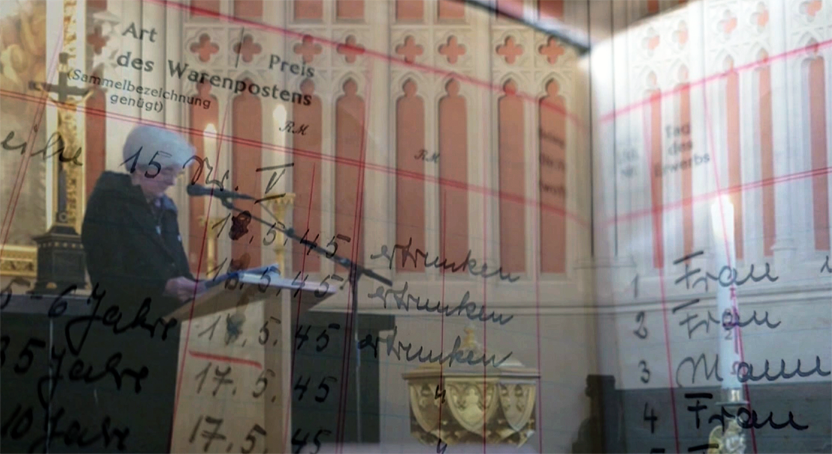 Art
des Warenpostens
(Sammelbezeichnung
genügt)
Preis
RM
RM
Tag
des
Erwerbs
15 Nr. V
18.5.45 ertrunken
18.5.45 ertrunken
17.5.45 ertrunken
17.5.45 "
17.5.45 "
5-6 Jahre
35 Jahre
10 Jahre
1 Frau
2 Frau
3 Mann
4 Frau